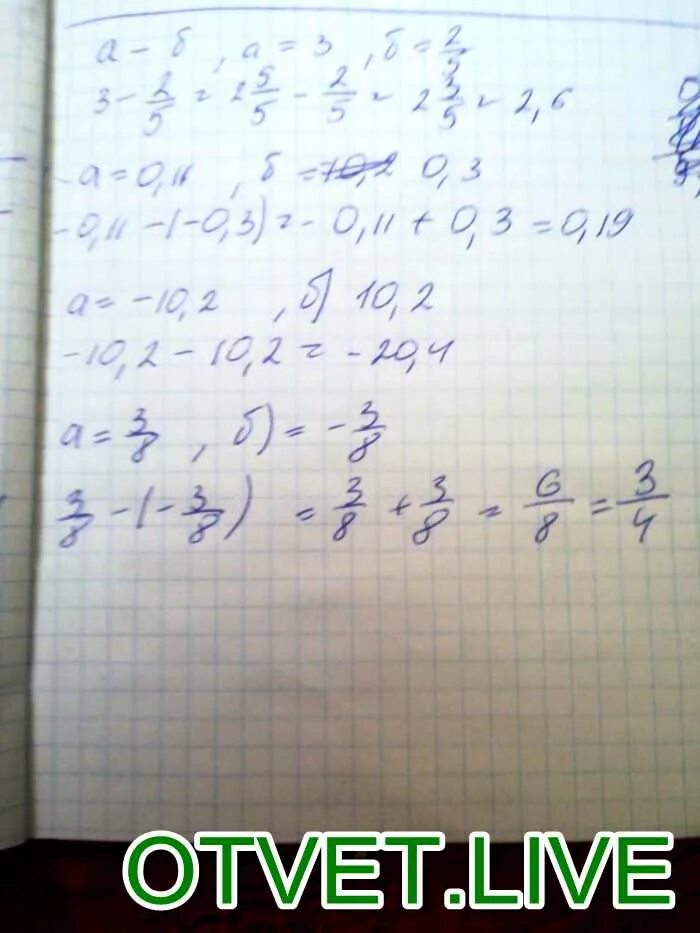 а - б , а = 3 , б = 2/5
3 - 2/5 = 2 5/5 - 2/5 = 2 3/5 = 2,6
-а = 0,11 , б = 0,3
-0,11 - (-0,3) = - 0,11 + 0,3 = 0,19
а = -10,2 , б) 10,2
-10,2 - 10,2 = -20,4
а = 3/8 , б) = - 3/8
3/8 - (- 3/8) = 3/8 + 3/8 = 6/8 = 3/4
OTVET.LIVE